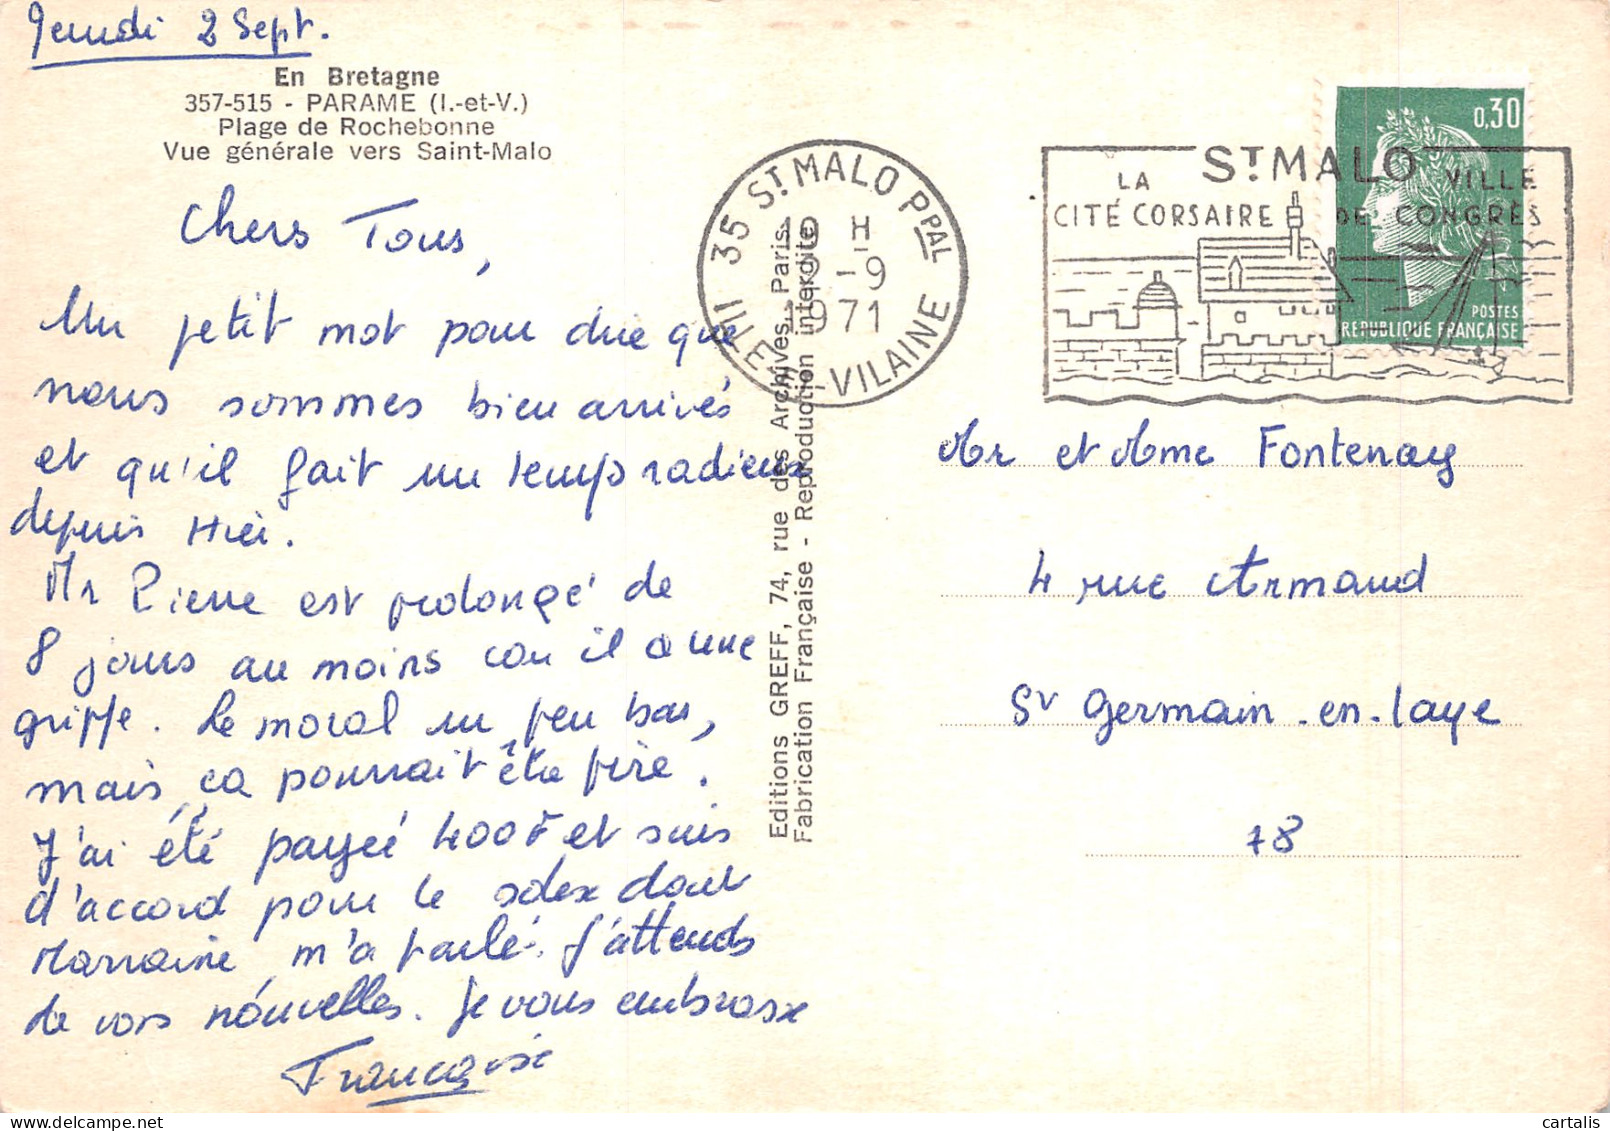 Jeudi 2 Sept.
En Bretagne
357-515 - PARAME (I.-et-V.)
Plage de Rochebonne
Vue générale vers Saint-Malo
Chers Tous,
Un petit mot pour dire que
nous sommes bien arrivés
et qu'il fait un temps radieux
depuis Hier.
Mr Pierre est prolongé de
8 jours au moins car il a une
grippe. Le moral un peu bas,
mais ça pourrait être pire.
J'ai été payée 400F et suis
d'accord pour le solex dont
Marraine m'a parlé. J'attends
de vos nouvelles. Je vous embrasse
Françoise
Editions GREFF, 74, rue des Archives, Paris.
Fabrication Française - Reproduction interdite
35 ST MALO PPAL
H
-9
1971
ILLE VILAINE
ST MALO
LA VILLE
CITÉ CORSAIRE DE CONGRÈS
0,30
POSTES
REPUBLIQUE FRANÇAISE
Mr et Mme Fontenay
4 rue Armand
St Germain-en-Laye
78
cartalis